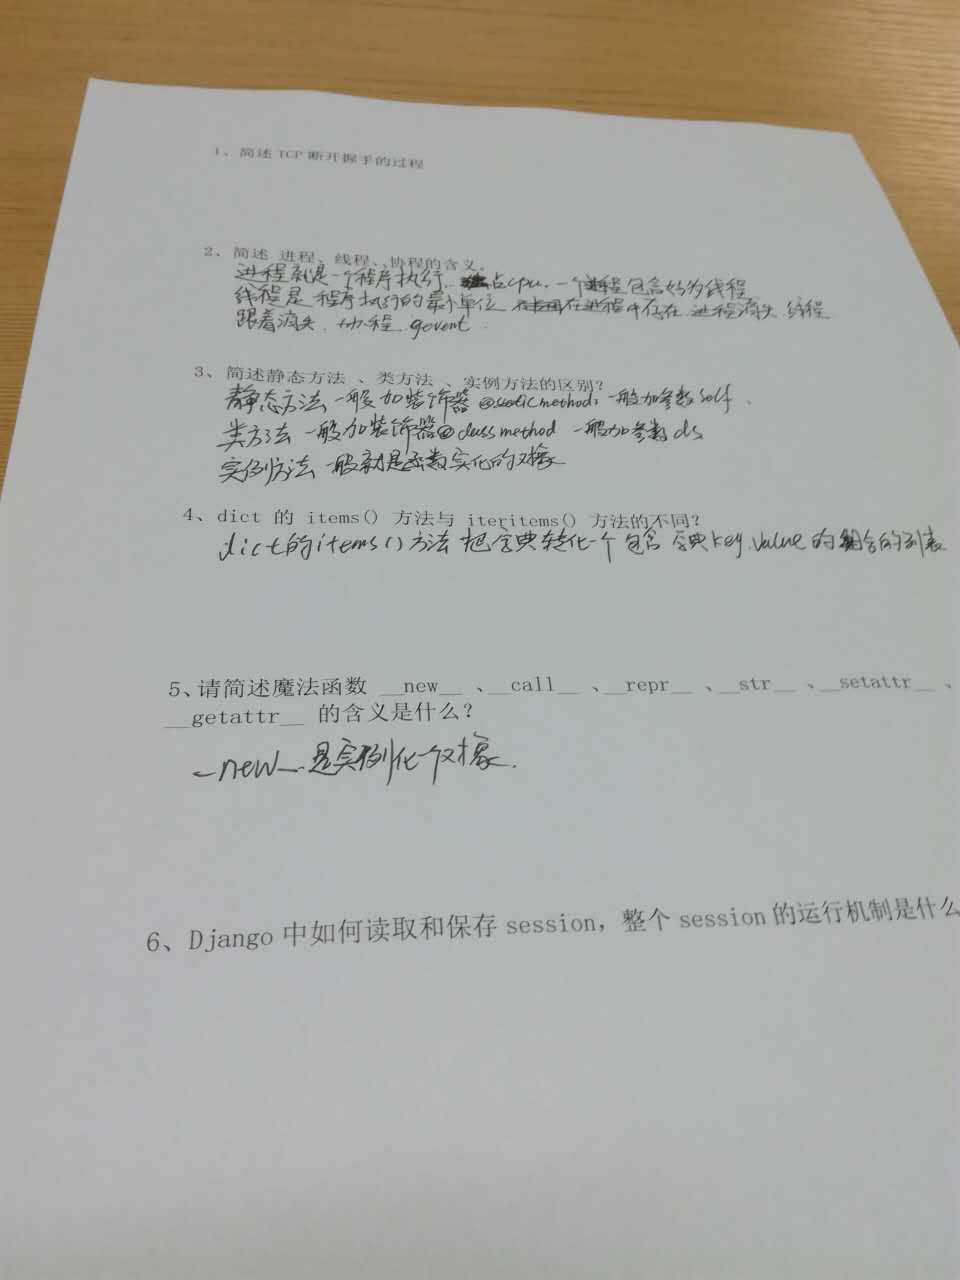 1、简述 TCP 断开握手的过程
2、简述 进程、线程、协程的含义。
进程就是一个程序执行，占cpu，一个进程包含好为线程
线程是程序执行的最小单位 在进程中存在，进程消失 线程
跟着消失，协程，gevent．
3、简述静态方法 、类方法 、实例方法的区别？
静态方法 一般加装饰器@staticmethod，一般加参数self．
类方法 一般加装饰器@classmethod 一般加参数cls
实例方法 一般就是函数实化的对橡
4、dict 的 items() 方法与 iteritems() 方法的不同？
dict的items()方法把字典转化一个包含字典key,value的组合的列表
5、请简述魔法函数 __new__ 、__call__ 、__repr__ 、__str__ 、__setattr__ 、
__getattr__ 的含义是什么？
_new_．是实例化一个对橡．
6、Django 中如何读取和保存 session，整个 session 的运行机制是什么